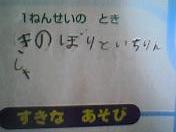 1ねんせいの とき
きのぼりといちりん
しゃ
すきな あそび